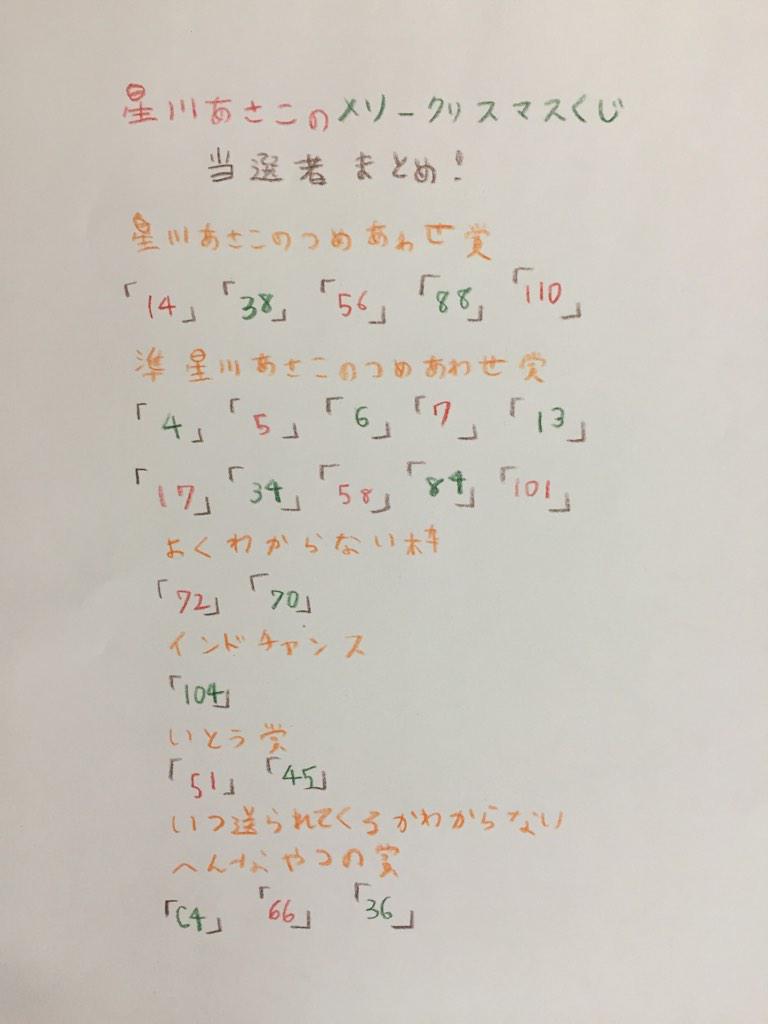 星川あさこのメリークリスマスくじ
当選者まとめ!
星川あさこのつめあわせ賞
「14」「38」「56」「88」「110」
準星川あさこのつめあわせ賞
「4」「5」「6」「7」「13」
「17」「34」「58」「84」「101」
よくわからない枠
「72」「70」
インドチャンス
「104」
いとう賞
「51」「45」
いつ送られてくるかわからない
へんなやつの賞
「C4」「66」「36」